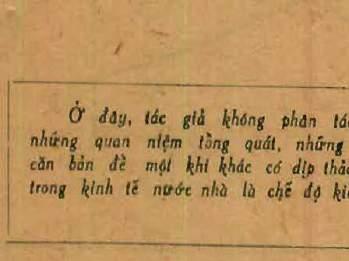 Ở đây, tác giả không phân tá
những quan niệm tổng quát, những
căn bản đề một khi khác có dịp thảo
trong kinh tế nước nhà là chế độ kiế